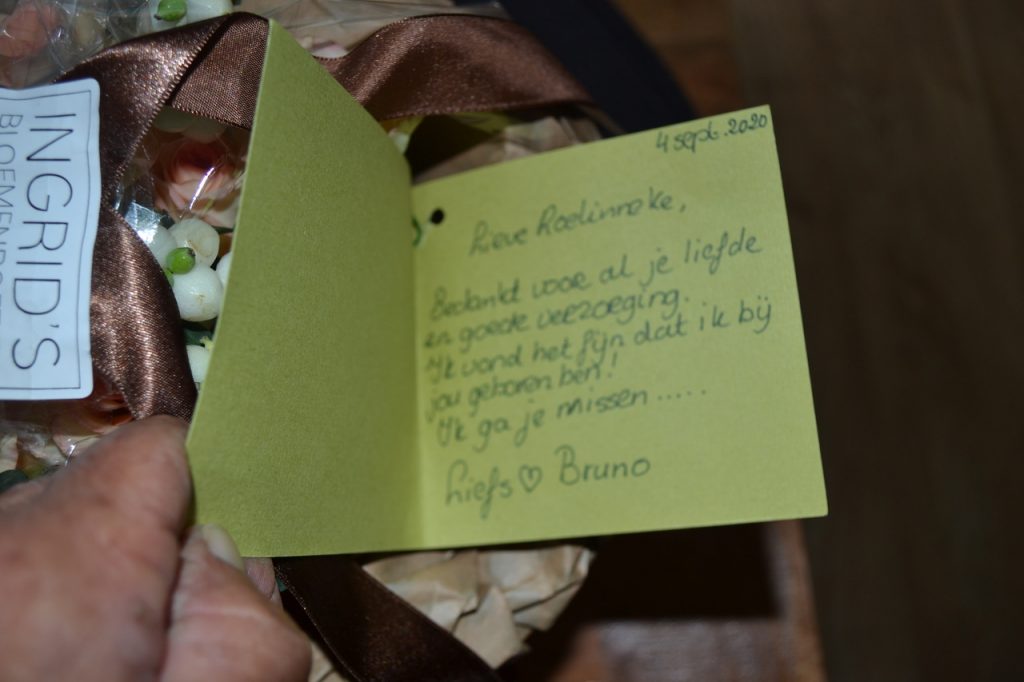 INGRID'S
4 sept. 2020
Lieve Roelinneke,
Bedankt voor al je liefde
en goede verzorging.
Ik vond het fijn dat ik bij
jou geboren ben!
Ik ga je missen .....
Liefs ♡ Bruno